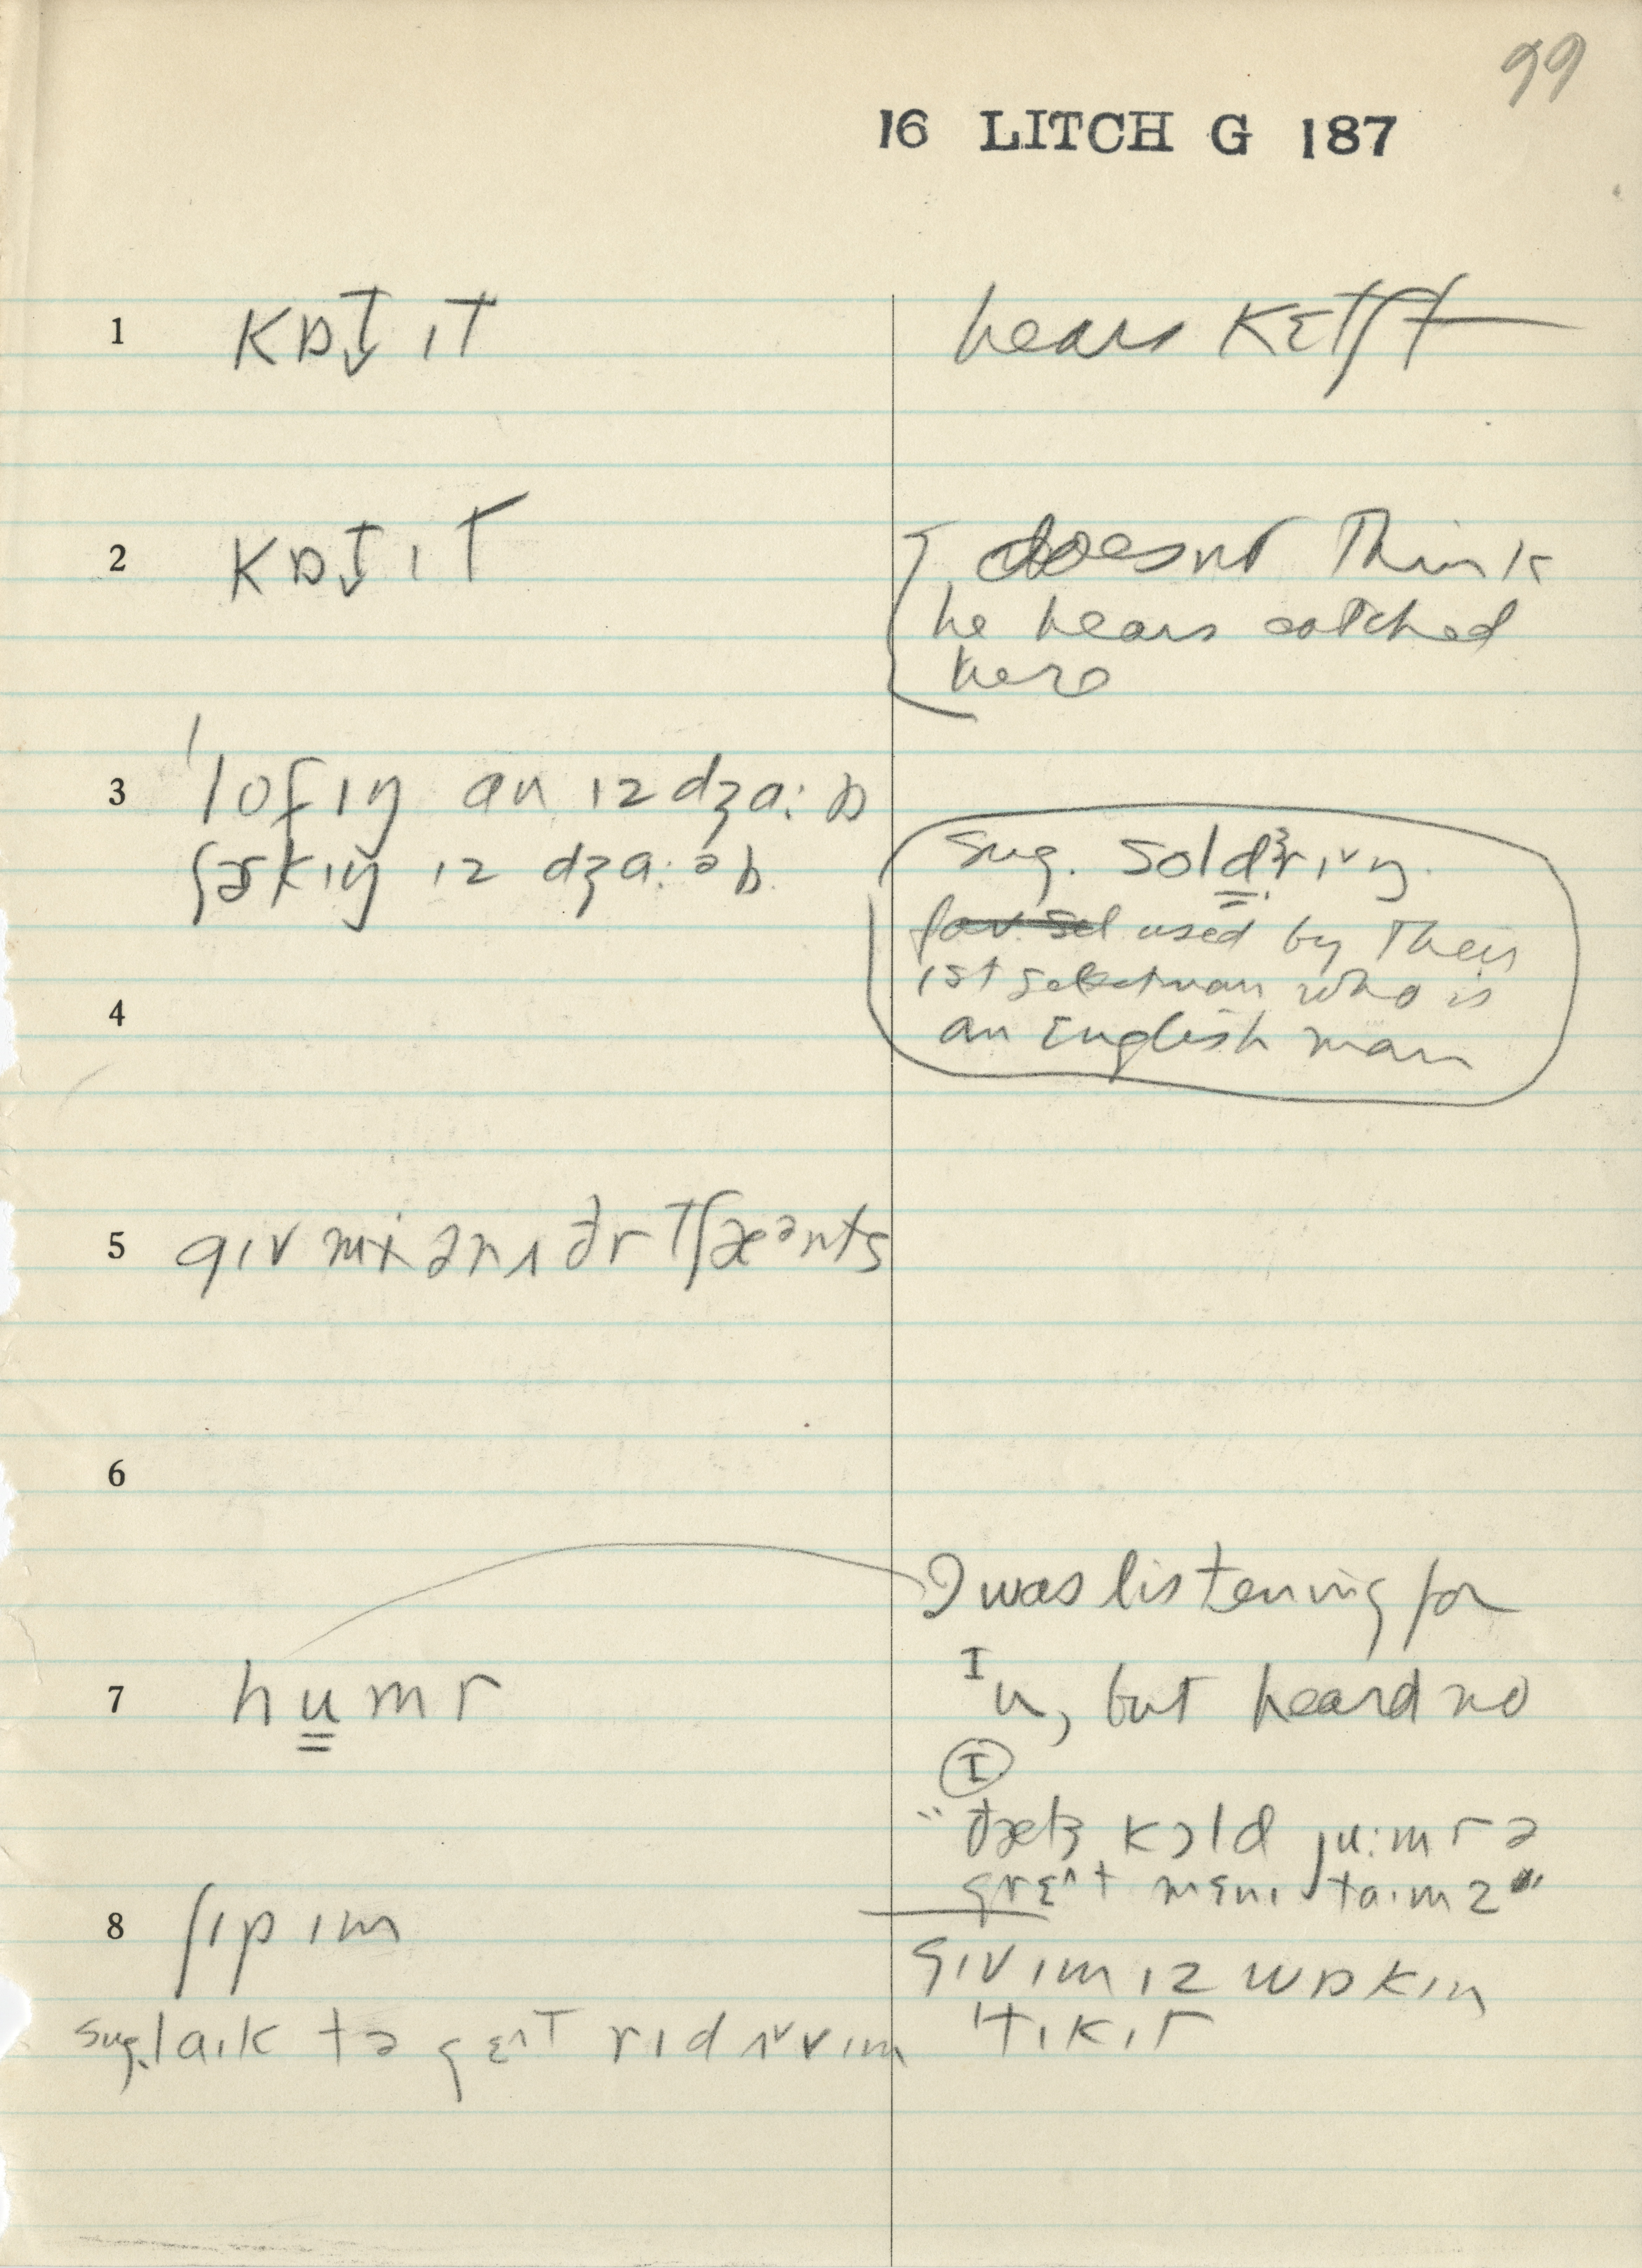 99
16 LITCH G 187
1 kɒt̬ ɪt
hears kɛtʃt
2 kɒt̬ ɪt
doesnt think
he hears catched
here
3 ˈlofɪŋ an ɪz dʒa:ɒ
ʃɝkɪŋ ɪz dʒa:əb
sug. soldɝrɪŋ.
used by their
1st selectman who is
an English man
4
5 gɪv mi ənʌðr tʃæᵊnts
6
7 humr
I was listening for
ɪu, but heard no
ɪ
"ðæts kɔld ju:mr ə
grɛʌt mɛnɪ taɪmz"
8 ʃɪp ɪm
gɪv ɪm ɪz wɒkɪn
ˈtɪkɪt
sug. laɪk tə gɛʌt rɪd ʌv vɪm